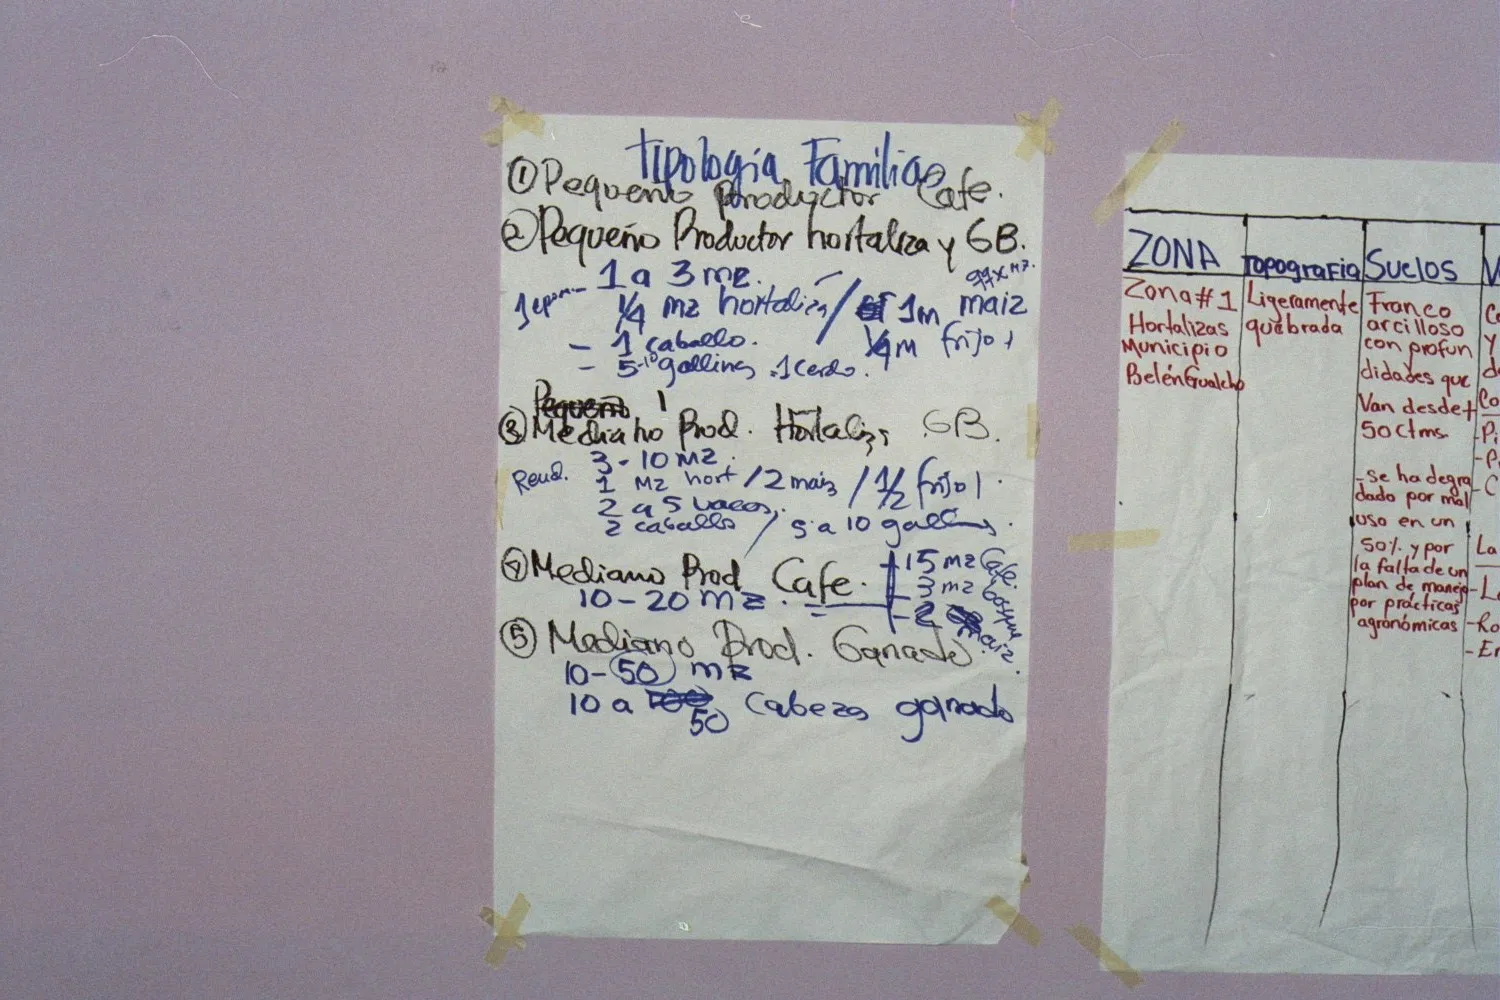 Tipología Familias
① Pequeño Productor Cafe.
② Pequeño Productor hortaliza y GB.
- 1 a 3 mz.
1/4 mz hortaliza / 1m maiz
- 1 caballo. 1/4 m frijol
- 5-10 gallinas .1 cerdo.
③ Mediano Prod. Hortaliz, GB.
3-10 MZ.
Rend. 1 MZ hort / 2 maiz / 1/2 frijol.
2 a 5 vacas,
2 caballo / 5 a 10 gallinas.
4 Mediano Prod Cafe.
10-20 mz.
- 15 mz Cafe.
- 3 mz bosque
- 2 maiz.
⑤ Mediano Prod. Ganado
10-50 mz
10 a 50 Cabezas ganado
ZONA
Zona #1
Hortalizas
Municipio
Belén Gualcho
TOPOGRAFIA
Ligeramente
quebrada
SUELOS
Franco
arcilloso
con profun
didades que
Van desde +
50 ctms.
- se ha degra
dado por mal
uso en un
50% y por
la falta de un
plan de manejo
por prácticas
agronómicas